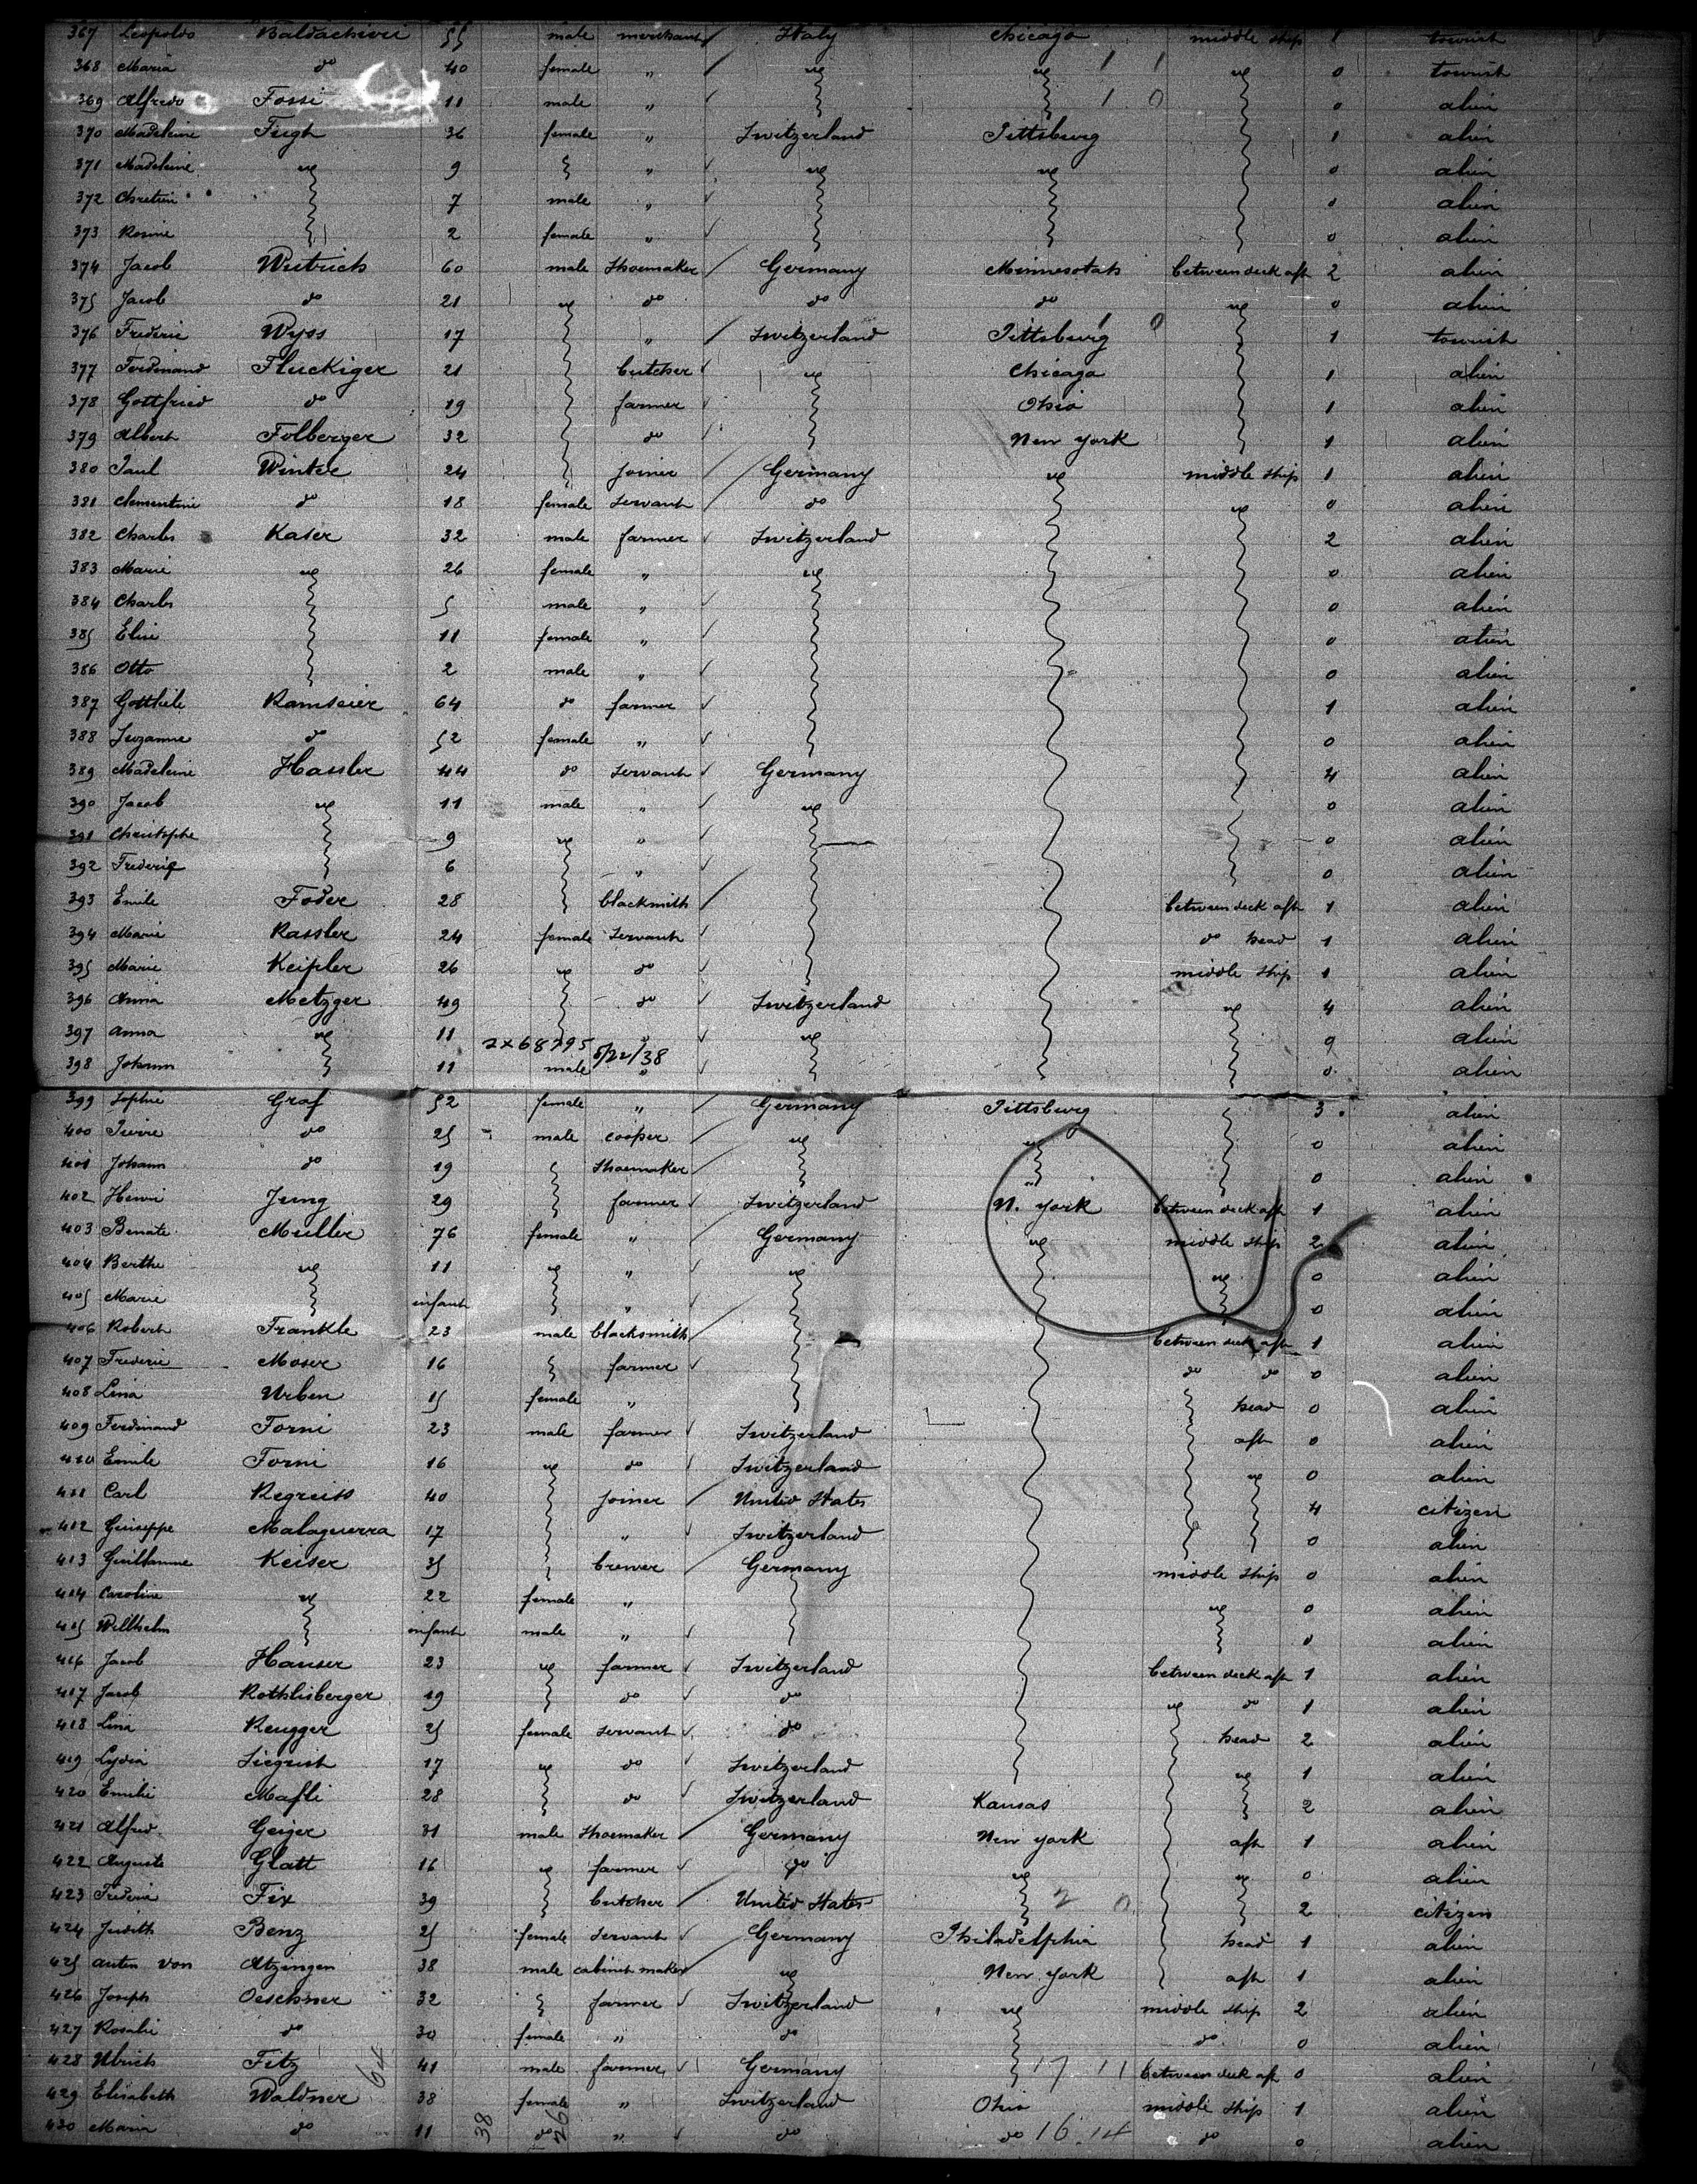 367 Leopoldo Baldachieri 55 male merchant Italy Chicago middle ship 1 tourist
368 Maria do 40 female " " " 1 1 " 0 tourist
369 Alfredo Fossi 11 male " 1 0 0 alien
370 Madeleine Fugh 36 female " Switzerland Pittsburg 1 alien
371 Madeleine " 9 " " " 0 alien
372 Chretien 7 male " 0 alien
373 Rosine 2 female " 0 alien
374 Jacob Wutrich 60 male shoemaker Germany Minnesotah between deck aft 2 alien
375 Jacob do 21 " do do do " 0 alien
376 Frederic Wyss 17 " Switzerland Pittsburg 1 0 1 tourist
377 Ferdinand Fluckiger 21 butcher " Chicago 1 alien
378 Gottfried do 19 farmer Ohio 1 alien
379 Albert Folberger 32 do New York 1 alien
380 Paul Winter 24 joiner Germany " middle ship 1 alien
381 Clementine do 18 female servant do " 0 alien
382 Charles Kaser 32 male farmer Switzerland 2 alien
383 Marie " 26 female " " 0 alien
384 Charles 5 male " 0 alien
385 Elise 11 female " 0 alien
386 Otto 2 male " 0 alien
387 Gottlieb Ramseier 64 do farmer 1 alien
388 Suzanne do 52 female " 0 alien
389 Madeleine Hassler 44 do servant Germany 4 alien
390 Jacob " 11 male " " 0 alien
391 Christophe 9 " " 0 alien
392 Frederic 6 " 0 alien
393 Emile Foder 28 blacksmith between deck aft 1 alien
394 Marie Rassler 24 female servant do head 1 alien
395 Marie Keipler 26 " do middle ship 1 alien
396 Anna Metzger 49 do Switzerland " 4 alien
397 Anna " 11 " " 0 alien
2x68795 5/22/38
398 Johann 11 male " 0 alien
399 Sophie Graf 52 female " Germany Pittsburg 3 alien
400 Pierre do 25 male cooper " " 0 alien
401 Johann do 19 shoemaker 0 alien
402 Henri Jung 29 farmer Switzerland N. York between deck aft 1 alien
403 Benate Muller 76 female " Germany " middle ship 2 alien
404 Berthe " 11 " " " " 0 alien
405 Marie infant " 0 alien
406 Robert Frankle 23 male blacksmith between deck aft 1 alien
407 Frederic Moser 16 farmer do do 0 alien
408 Lina Urben 15 female " head 0 alien
409 Ferdinand Forni 23 male farmer Switzerland aft 0 alien
410 Emile Forni 16 " do Switzerland " 0 alien
411 Carl Regreiss 40 joiner United States 4 citizen
412 Guiseppe Malaguerra 17 " Switzerland 0 alien
413 Guillaume Keiser 35 brewer Germany middle ship 0 alien
414 Caroline " 22 female " " 0 alien
415 Willhelm infant male " 0 alien
416 Jacob Hauser 23 " farmer Switzerland between deck aft 1 alien
417 Jacob Rothlisberger 19 do do " do 1 alien
418 Lina Rengger 25 female servant do head 2 alien
419 Lydia Siegrist 17 " do Switzerland " 1 alien
420 Emilie Mafli 28 do Switzerland Kansas 2 alien
421 Alfred Geiger 31 male shoemaker Germany New York aft 1 alien
422 Auguste Glatt 16 " farmer do " " 0 alien
423 Frederic Fix 39 butcher United States 2 0 2 citizen
424 Judith Benz 25 female servant Germany Philadelphia head 1 alien
425 Anton von Atzengen 38 male cabinet maker " New York aft 1 alien
426 Joseph Oeschner 32 farmer Switzerland " middle ship 2 alien
427 Rosalie do 30 female " do do 0 alien
428 Ulrich Fitz 64 41 male farmer Germany 17 11 between deck aft 0 alien
429 Elisabeth Waldner 38 female " Switzerland Ohio middle ship 1 alien
430 Maria do 11 38 do 26 " do do 16.14 do 0 alien